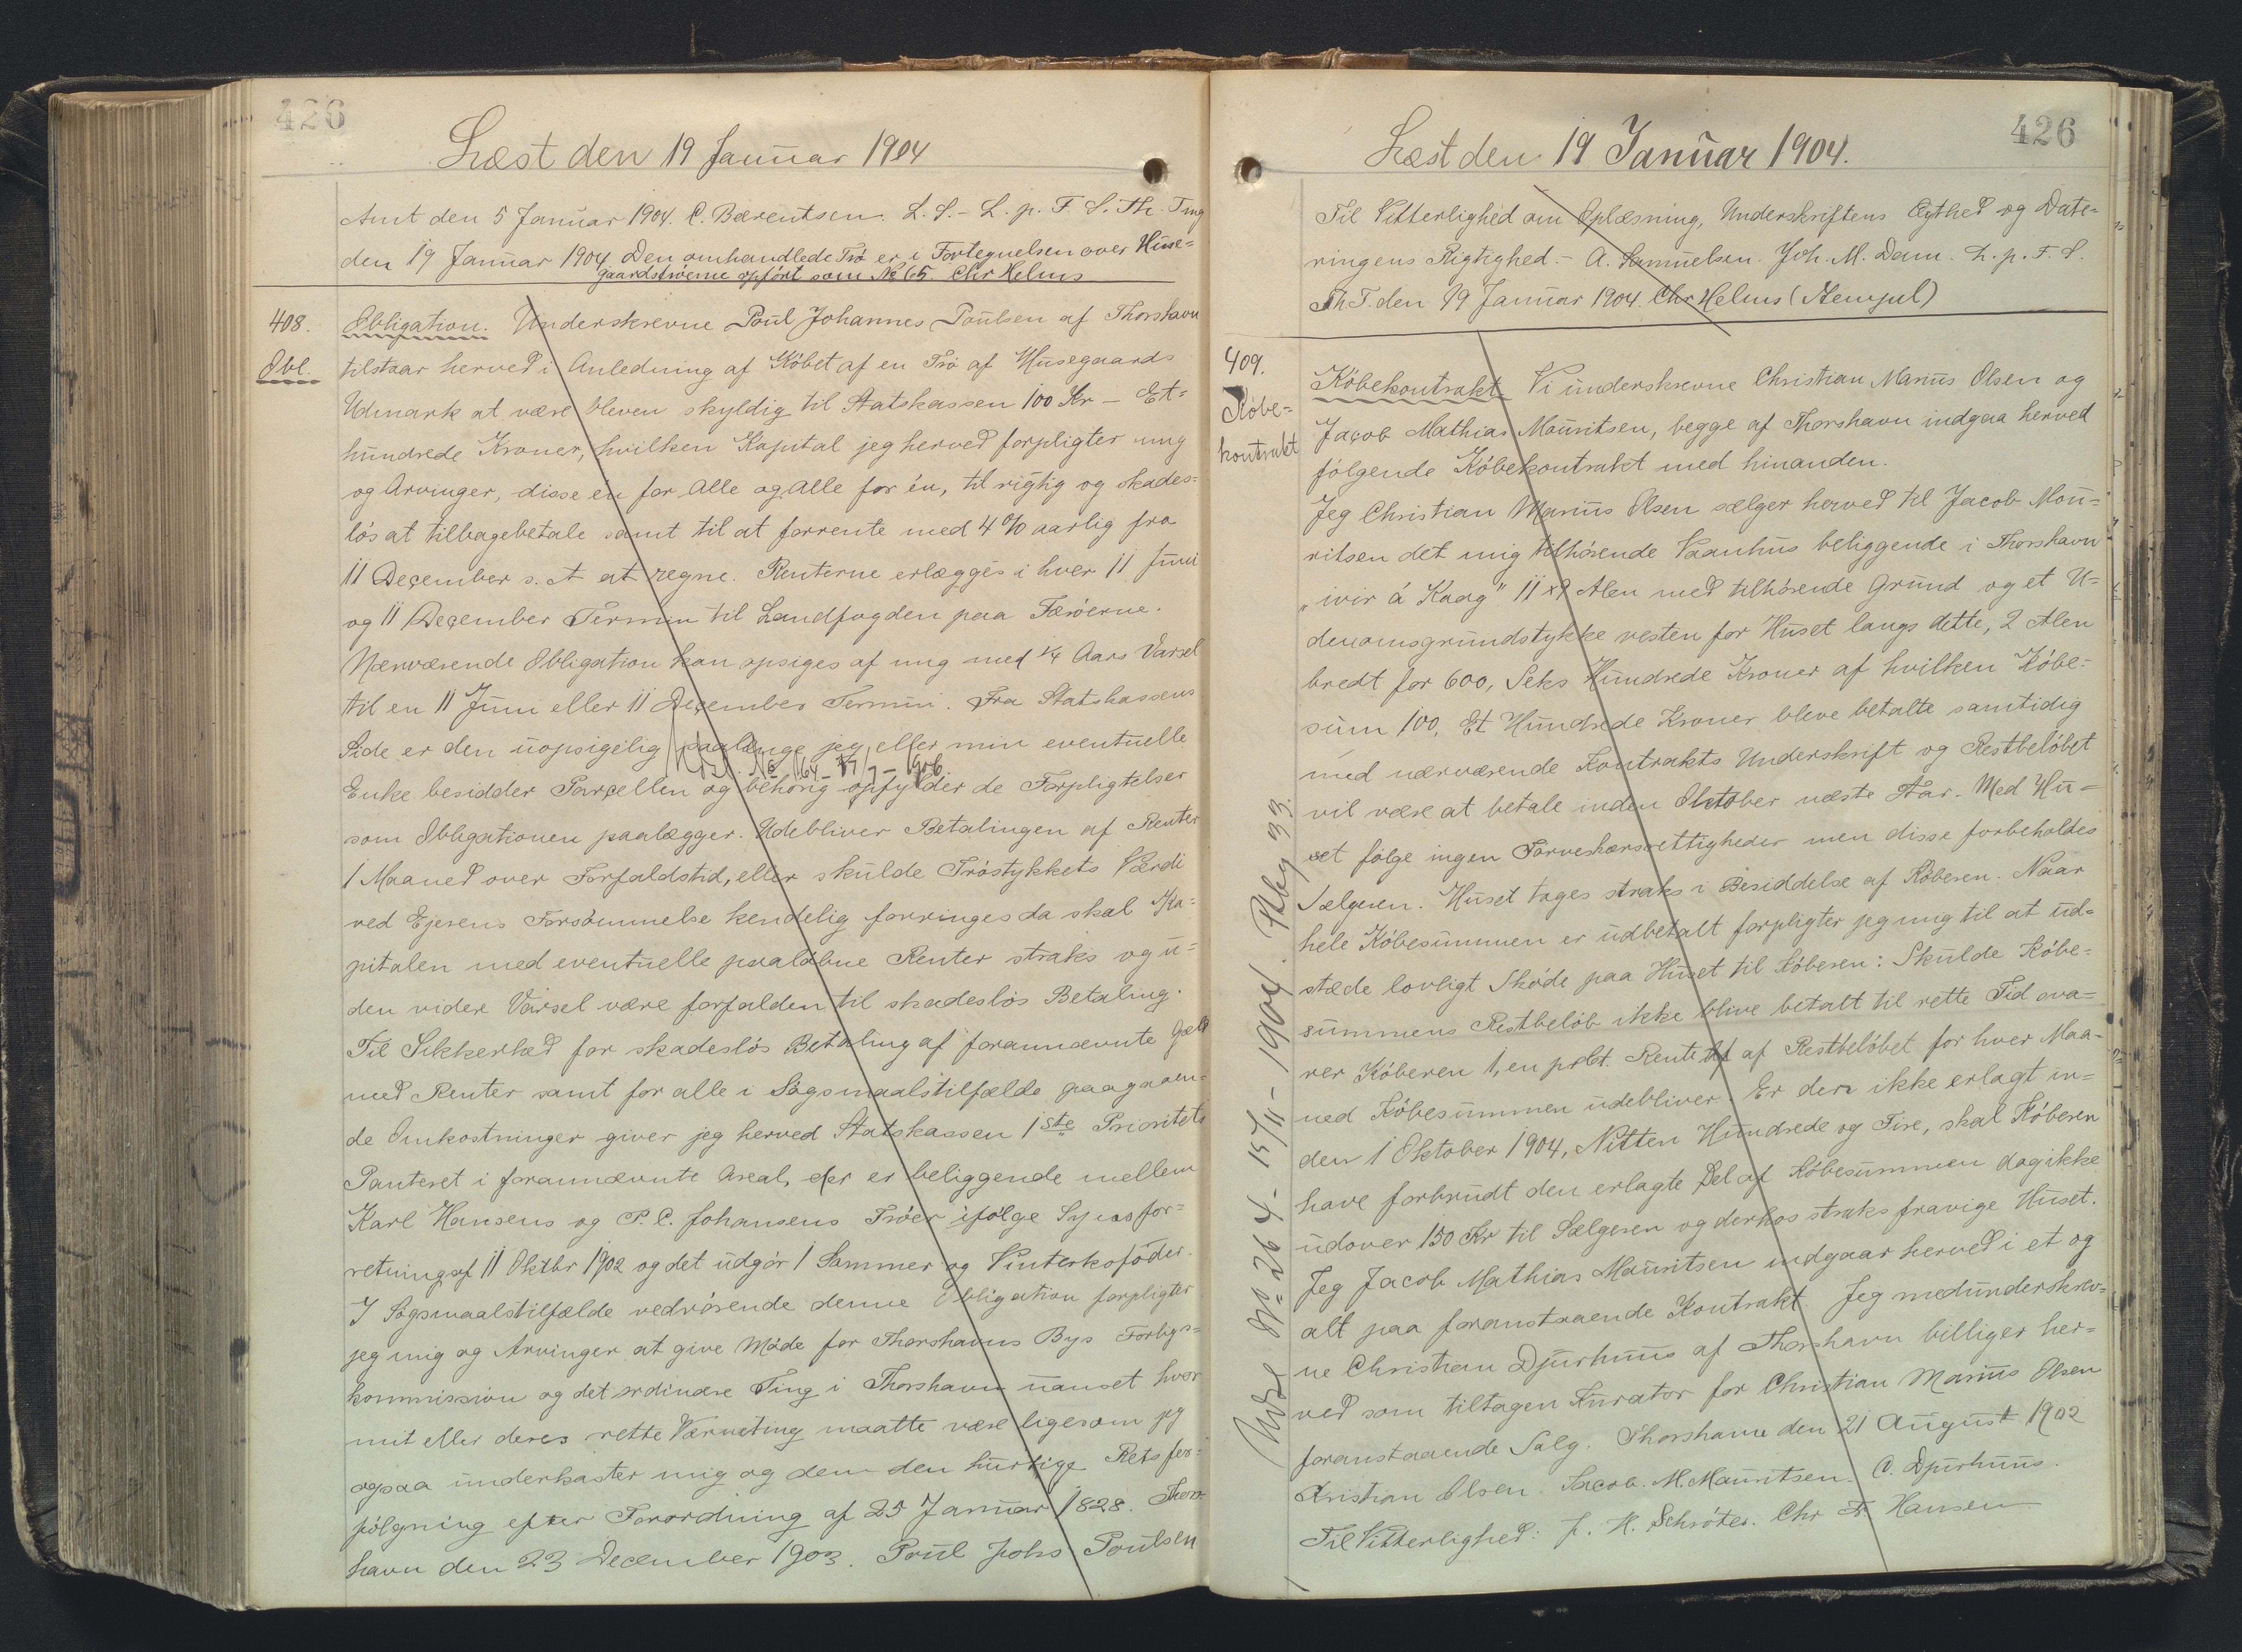 426
Læst den 19 Januar 1904
Amt den 5 Januar 1904. C. Bærentsen. L. S. - L. p. F. S. Th. Ting
den 19 Januar 1904. Den omhandlede Trø er i Fortegnelsen over Huse=
gaardstrøerne opført som No 65. Chr Helms
408.
Obl.
Obligation. Underskrevne Poul Johannes Poulsen af Thorshavn
tilstaar herved i Anledning af Købet af en Trø af Husegaards
Udmark at være bleven skyldig til Statskassen 100 Kr - Et=
hundrede Kroner, hvilken Kapital jeg herved forpligter mig
og Arvinger, disse en for Alle og Alle for én, til rigtig og skades=
løs at tilbagebetale samt til at forrente med 4 % aarlig fra
11 December s. A at regne. Renterne erlægges i hver 11 Juni
og 11 December Termin til Landfogden paa Færøerne.
Nærværende Obligation kan opsiges af mig med 1/4 Aars Varsel
til en 11 Juni eller 11 December Termin. Fra Statskassens
Side er den uopsigelig saalænge jeg eller min eventuelle
Udsl. No 164 - 17/7 - 1906
Enke besidder Parcellen og behørig opfylder de Forpligtelser
som Obligationen paalægger. Udebliver Betalingen af Renter
1 Maaned over Forfaldstid, eller skulde Trøstykkets Værdi
ved Ejerens Forsømmelse kendelig forringes da skal Ka=
pitalen med eventuelle paaløbne Renter straks og u=
den videre Varsel være forfalden til skadesløs Betaling.
Til Sikkerhed for skadesløs Betaling af forannævnte Gæld
med Renter samt for alle i Søgsmaalstilfælde paagaaen=
de Omkostninger giver jeg herved Statskassen 1ste Prioritets
Panteret i forannævnte Areal, der er beliggende mellem
Karl Hansens og P. C. Johansens Trøer ifølge Synsfor=
retning af 11 Oktbr 1902 og det udgør 1 Sommer og Vinterkofoder.
I Søgsmaalstilfælde vedrørende denne Obligation forpligter
jeg mig og Arvinger at give Møde for Thorshavns Bys Forligs=
kommission og det ordinære Ting i Thorshavn uanset hvor
mit eller deres rette Værneting maatte være ligesom jeg
ogsaa underkaster mig og dem den hurtige Retsfor=
følgning efter Forordning af 25 Januar 1828. Thors=
havn den 23 December 1903. Poul Johs Poulsen
426
Læst den 19 Januar 1904.
Til Vitterlighed om Oplæsning, Underskriftens Ægthed og Date=
ringens Rigtighed. - A. Samuelsen. Joh. M. Dam. L. p. F. S.
Th T. den 19 Januar 1904. Chr Helms (Stempel)
409.
Købe=
kontrakt
Købekontrakt. Vi underskrevne Christian Marius Olsen og
Jacob Mathias Mouritsen, begge af Thorshavn indgaa herved
følgende Købekontrakt med hinanden.
Jeg Christian Marius Olsen sælger herved til Jacob Mou=
ritsen det mig tilhørende Vaanhus beliggende i Thorshavn
"ivir á Kaag" 11 x 9 Alen med tilhørende Grund og et U=
denomsgrundstykke vesten for Huset langs dette, 2 Alen
bredt for 600, Seks Hundrede Kroner af hvilken Købe=
sum 100, Et Hundrede Kroner bleve betalte samtidig
med nærværende Kontrakts Underskrift og Restbeløbet
vil være at betale inden Oktober næste Aar. Med Hu=
set følge ingen Tørveskærsrettigheder men disse forbeholdes
Sælgeren. Huset tages straks i Besiddelse af Køberen. Naar
hele Købesummen er udbetalt forpligter jeg mig til at ud=
stæde lovligt Skøde paa Huset til Køberen: Skulde Købe=
summens Restbeløb ikke blive betalt til rette Tid sva=
rer Køberen 1, en pCt. Rente af Restbeløbet for hver Maa=
ned Købesummen udebliver. Er den ikke erlagt in=
den 1 Oktober 1904, Nitten Hundrede og Fire, skal Køberen
have forbrudt den erlagte Del af Købesummen dog ikke
udover 150 Kr til Sælgeren og derhos straks fravige Huset.
Jeg Jacob Mathias Mauritsen indgaar herved i et og
alt paa foranstaaende Kontrakt. Jeg medunderskrev=
ne Christian Djurhuus af Thorshavn billiger her=
ved som tiltagen Kurator for Christian Marius Olsen
foranstaaende Salg. Thorshavn den 21 August 1902
Kristian Olsen. Jacob. M. Mauritsen. C. Djurhuus.
Til Vitterlighed: J. H. Schrøter. Chr Fr. Hansen
Udsl No 264 - 15/11 - 1904.